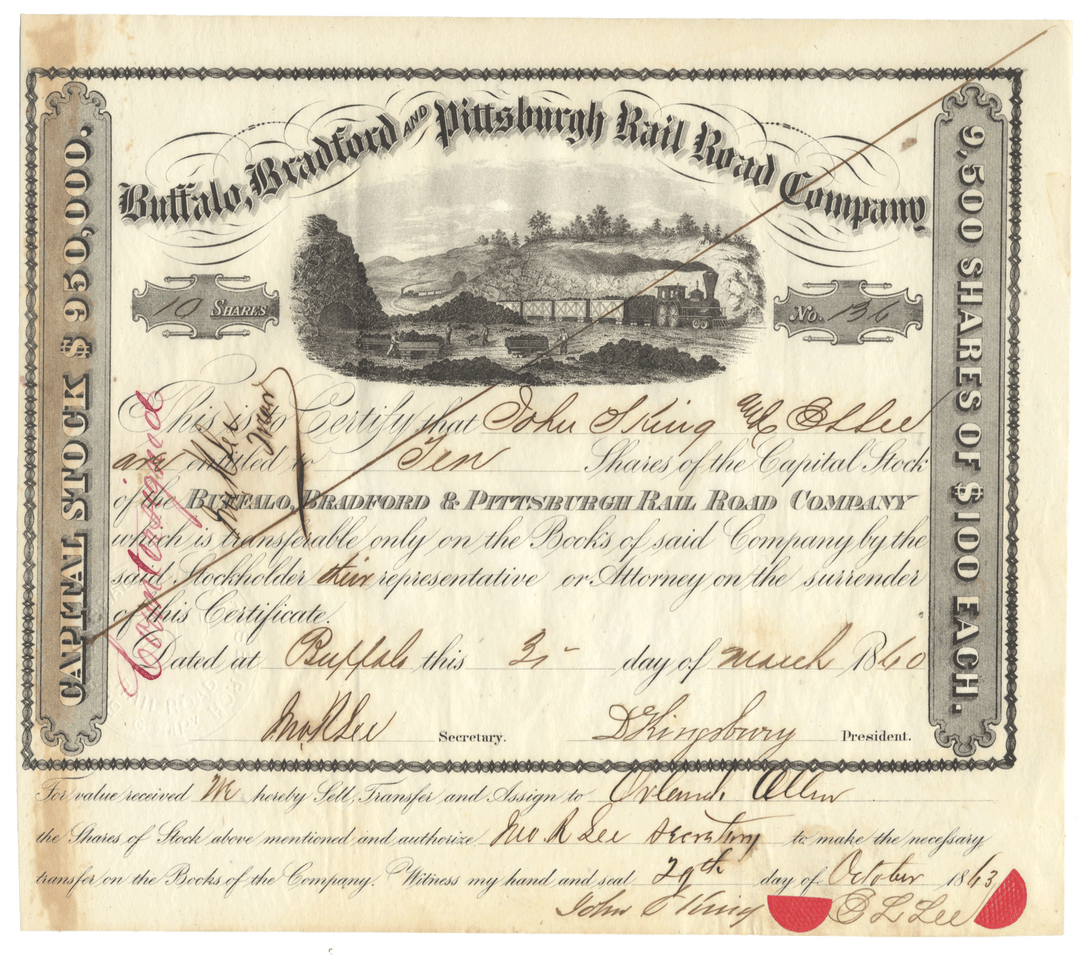 Buffalo, Bradford AND Pittsburgh Rail Road Company
CAPITAL STOCK $950,000.
9,500 SHARES OF $100 EACH.
10 SHARES
No. 136
This is to Certify that John S King and E L Lee
are entitled to Ten Shares of the Capital Stock
of the BUFFALO, BRADFORD & PITTSBURGH RAIL ROAD COMPANY
which is transferable only on the Books of said Company by the
said Stockholder their representative or Attorney on the surrender
of this Certificate.
Countersigned
Dated at Buffalo this 3 day of March 1860
Jno R Lee Secretary. D Kingsbury President.
For value received We hereby Sell, Transfer and Assign to Orlando Allen
the Shares of Stock above mentioned and authorize Jno R Lee Secretary to make the necessary
transfer on the Books of the Company. Witness my hand and seal 29th day of October 1863
John S King E L Lee